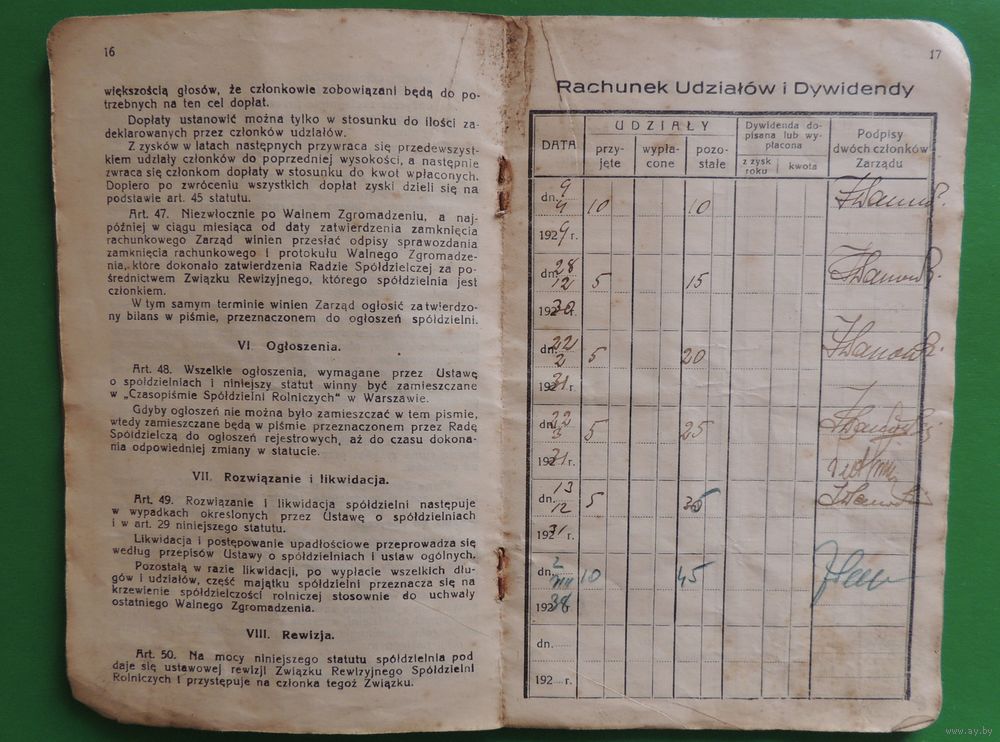 16
większością głosów, że członkowie zobowiązani będą do po-
trzebnych na ten cel dopłat.
Dopłaty ustanowić można tylko w stosunku do ilości za-
deklarowanych przez członków udziałów.
Z zysków w latach następnych przywraca się przedewszyst-
kiem udziały członków do poprzedniej wysokości, a następnie
zwraca się członkom dopłaty w stosunku do kwot wpłaconych.
Dopiero po zwróceniu wszystkich dopłat zyski dzieli się na
podstawie art. 45 statutu.
Art. 47. Niezwłocznie po Walnem Zgromadzeniu, a naj-
później w ciągu miesiąca od daty zatwierdzenia zamknięcia
rachunkowego Zarząd winien przesłać odpisy sprawozdania
zamknięcia rachunkowego i protokułu Walnego Zgromadze-
nia, które dokonało zatwierdzenia Radzie Spółdzielczej za po-
średnictwem Związku Rewizyjnego, którego spółdzielnia jest
członkiem.
W tym samym terminie winien Zarząd ogłosić zatwierdzo-
ny bilans w piśmie, przeznaczonem do ogłoszeń spółdzielni.
VI. Ogłoszenia.
Art. 48. Wszelkie ogłoszenia, wymagane przez Ustawę
o spółdzielniach i niniejszy statut winny być zamieszczane
w „Czasopiśmie Spółdzielni Rolniczych" w Warszawie.
Gdyby ogłoszeń nie można było zamieszczać w tem pismie,
wtedy zamieszczane będą w piśmie przeznaczonem przez Radę
Spółdzielczą do ogłoszeń rejestrowych, aż do czasu dokona-
nia odpowiedniej zmiany w statucie.
VII. Rozwiązanie i likwidacja.
Art. 49. Rozwiązanie i likwidacja spółdzielni następuje
w wypadkach okreslonych przez Ustawę o spółdzielniach
i w art. 29 niniejszego statutu.
Likwidacja i postępowanie upadłościowe przeprowadza się
według przepisów Ustawy o spółdzielniach i ustaw ogólnych.
Pozostałą w razie likwidacji, po wypłacie wszelkich dłu-
gów i udziałów, część majątku spółdzielni przeznacza się na
krzewienie spółdzielczości rolniczej stosownie do uchwały
ostatniego Walnego Zgromadzenia.
VIII. Rewizja.
Art. 50. Na mocy niniejszego statutu spółdzielnia pod
daje się ustawowej rewizji Związku Rewizyjnego Spółdzielni
Rolniczych i przystępuje na członka tegoż Związku.
17
Rachunek Udziałów i Dywidendy
DATA
UDZIAŁY
przy-
jęte
wypła-
cone
pozo-
stałe
Dywidenda do-
pisana lub wy-
płacona
z zysk
roku
kwota
Podpisy
dwóch członków
Zarządu
dn. 9/9 10 10
1929 r.
dn. 28/12 5 15
1930
dn. 22/2 5 20
1931 r.
dn. 22/3 5 25
1931 r.
dn. 13/12 5 35
1931 r.
dn. 2/VIII 10 45
1938
dn.
192 r.
www.ay.by